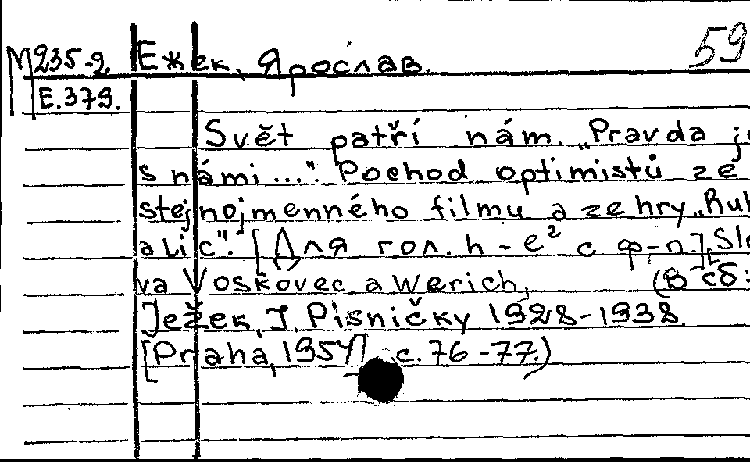 М235-2. Ежек, Ярослав. 59
Е.379.
Svět patří nám. „Pravda j
s námi...". Pochod optimistů ze
stejnojmenného filmu a ze hry „Rub
a líc". [Для гол. h-e² с ф-п]. Slo
va Voskovec a Werich, (В сб:
Ježek, J. Písničky 1928-1938.
[Praha, 1954] с. 76-77.)